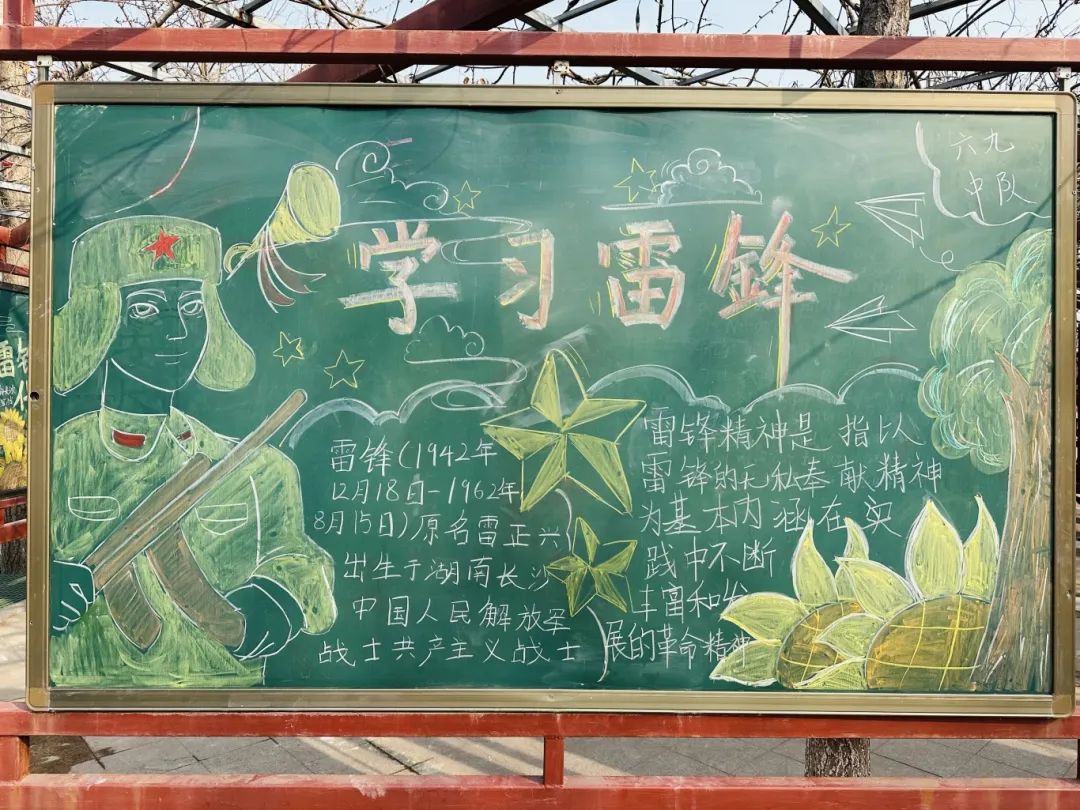 六九
中队
学习雷鋒
雷锋(1942年
12月18日-1962年
8月15日)原名雷正兴
出生于湖南长沙
中国人民解放军
战士共产主义战士
雷锋精神是指以
雷锋的无私奉献精神
为基本内涵在实
践中不断
丰富和
展的革命精神
雷